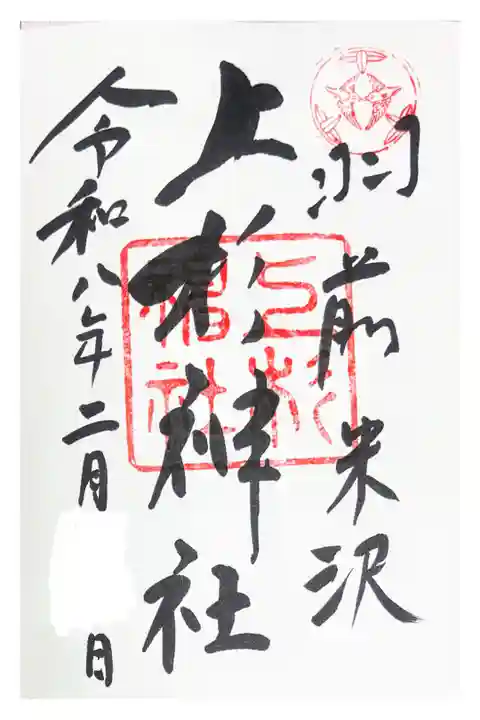 羽前米沢
上杉神社
上杉神社
令和八年二月 日